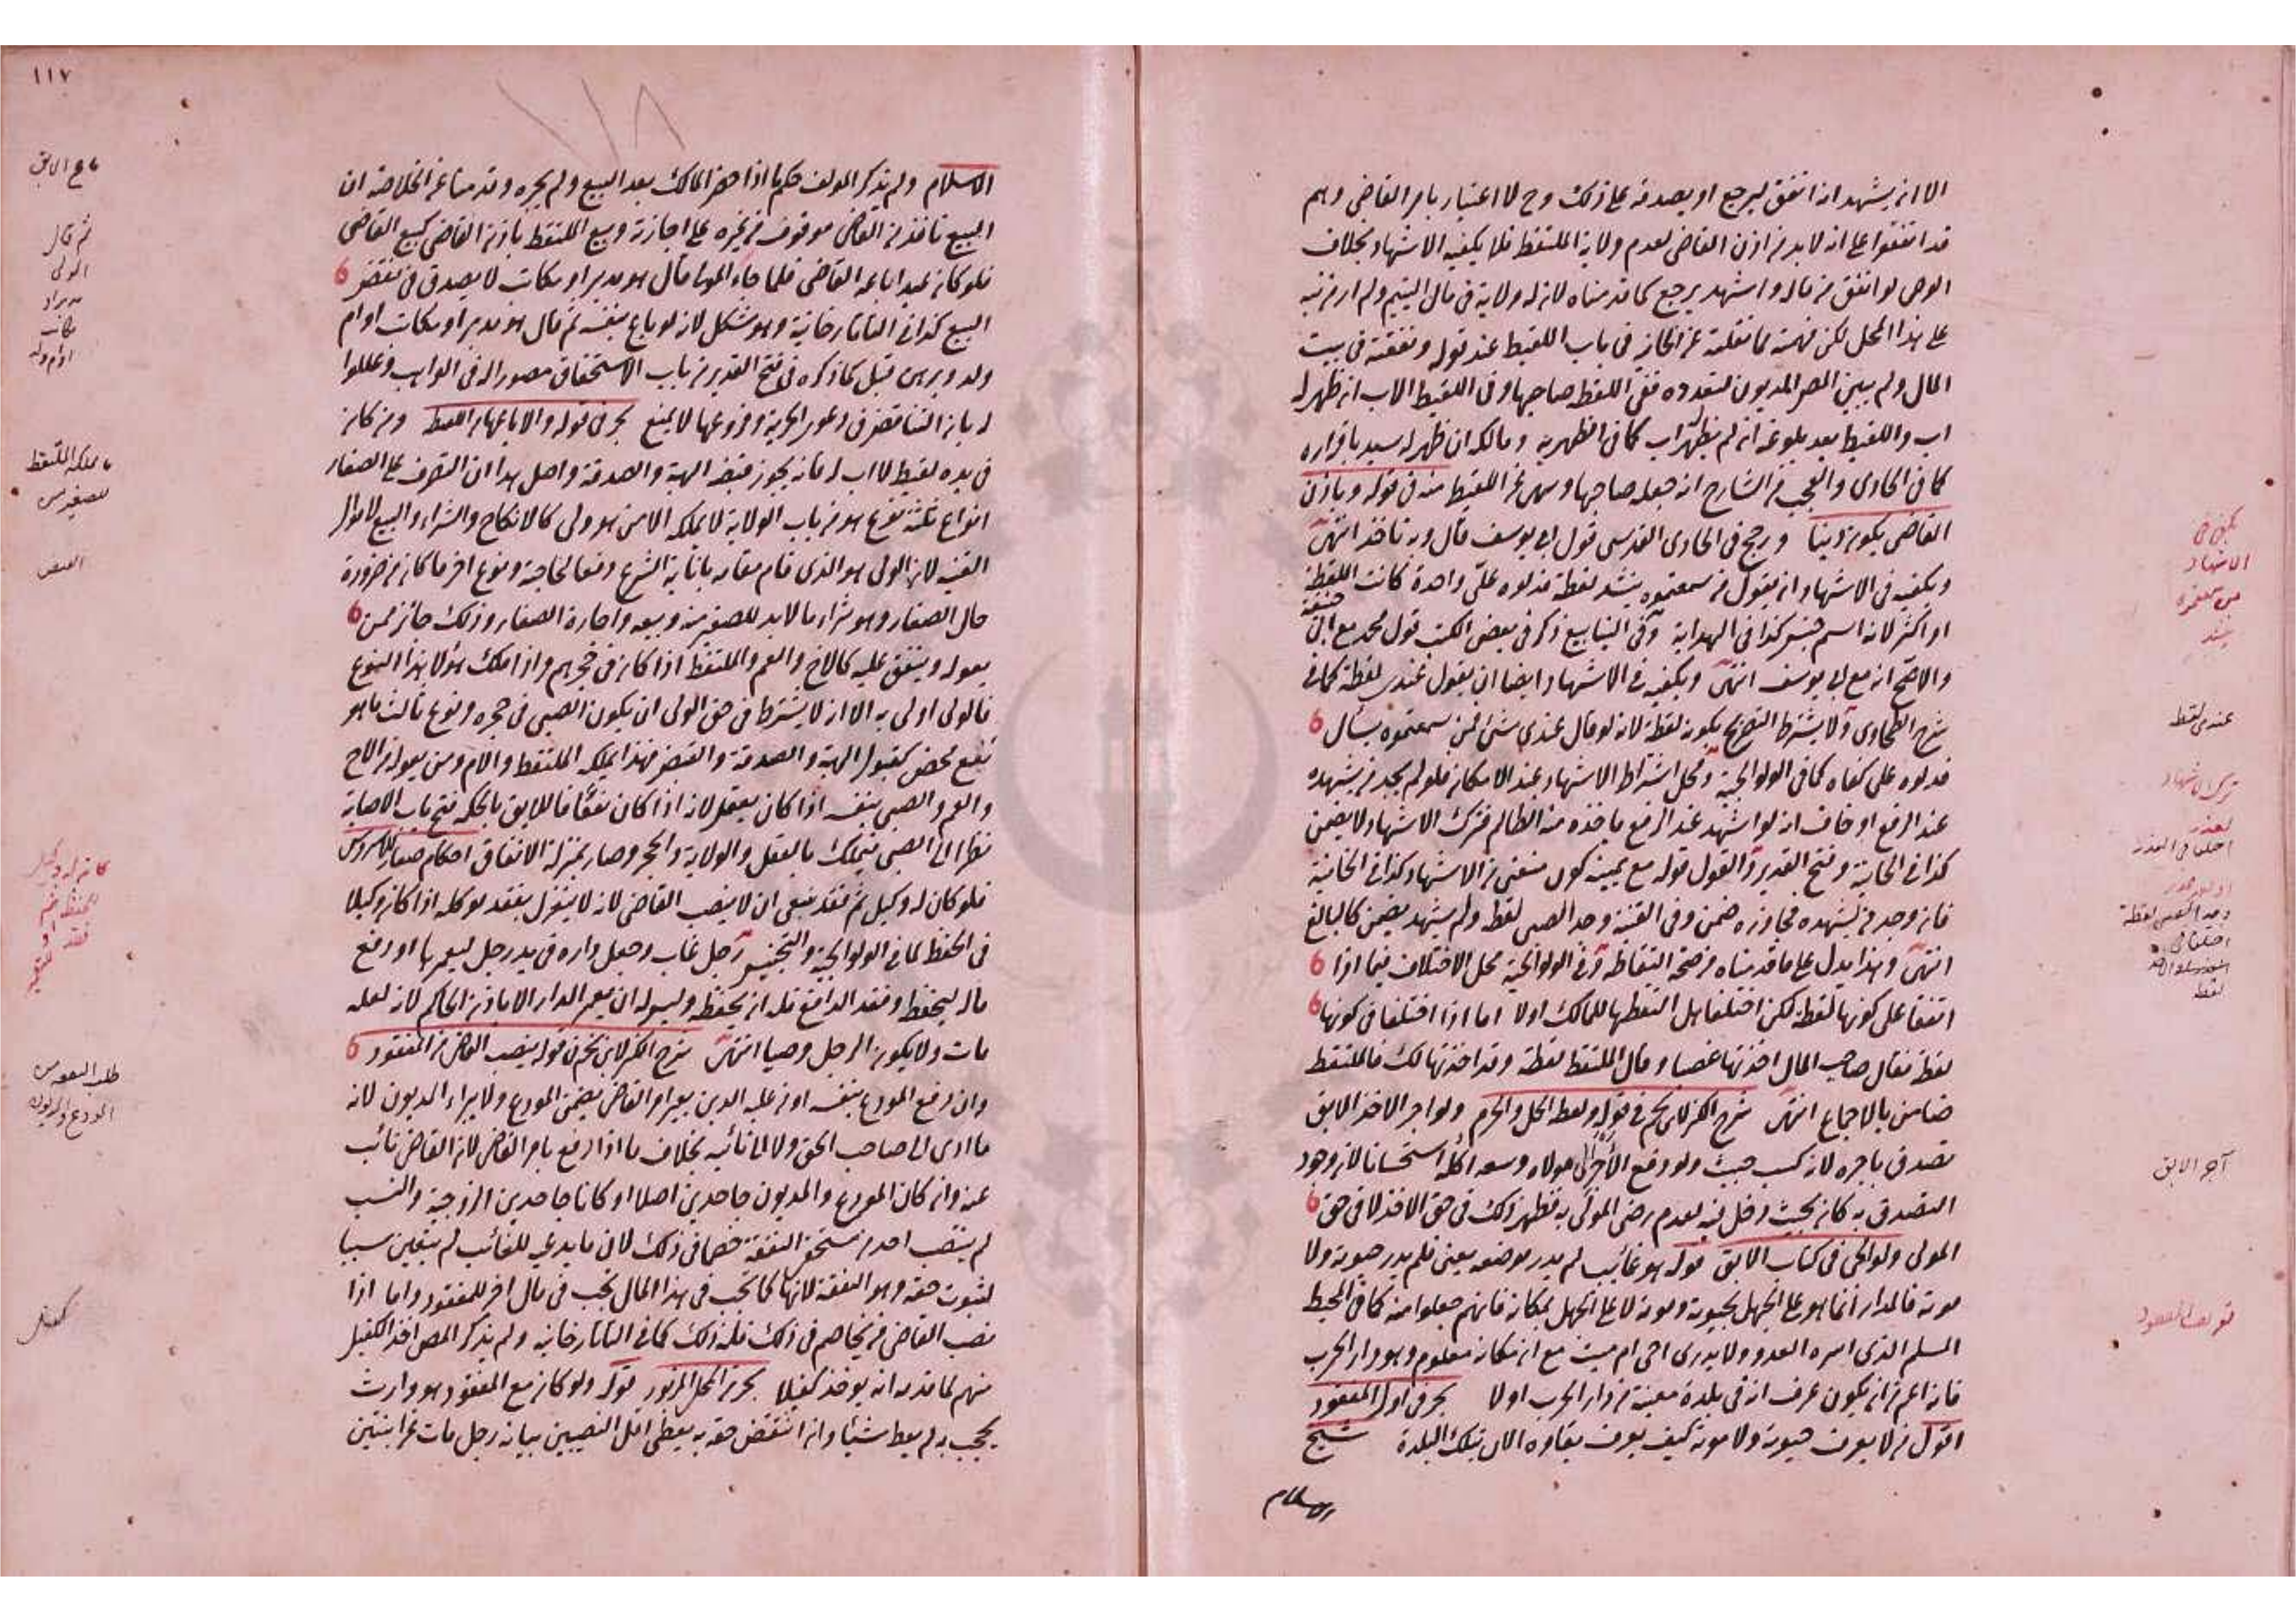 الا ان يشهد انه انفق ليرجع او يصدقه على ذلك وح لا اعتبار بامر القاضى وهم
قد اتفقوا على انه لا بد من اذن القاضى لعدم ولاية الملتقط فلا يكفيه الاشهاد بخلاف
الوصى لو انفق من ماله واشهد يرجع كما قدمناه لان له ولاية فى مال اليتيم ولم ار من نبه
على هذا المحل لكن فهمته مما نقلته عن الخانية فى باب اللقيط عند قوله ونفقته فى بيت
المال ولم يبين المص المديون لتعدده ففى اللقطة صاحبها وفى اللقيط الاب ان ظهر له
اب واللقيط بعد بلوغه ان لم يظهر اب كما فى الظهيرية ومالكه ان ظهر له سيد باقراره
كما فى الحاوى والعجب من الشارح انه جعله صاحبها وسهى عن اللقيط منه فى قوله وباذن
القاضى يكون دينا ورجح فى الحاوى القدسى قول ابى يوسف قال وبه ناخذ انتهى
ويكفيه فى الاشهاد ان يقول من سمعتموه ينشد لقطة فدلوه على واحدة كانت اللقطة
او اكثر لانه اسم جنس كذا فى الهداية وفى الينابيع ذكر فى بعض الكتب قول محمد مع ابى حنيفة
والاصح انه مع ابى يوسف انتهى ويكفيه فى الاشهاد ايضا ان يقول عندى لقطة كما فى
شرح الطحاوى ولا يشترط التصريح بكونه لقطة لانه لو قال عندى شئ فمن سمعتموه يسأل
فدلوه على كفاه كما فى الولوالجية ومحل اشتراط الاشهاد عند الامكان فلو لم يجد من يشهده
عند الرفع او خاف انه لو اشهد عند الرفع ياخذه منه الظالم فترك الاشهاد لا يضمن
كذا فى الخانية وفتح القدير والقول قوله مع يمينه كون منعنى من الاشهاد كذا فى الخانية
فان وجد من يشهده فجاوزه ضمن وفى القنية وجد الصبى لقطة ولم يشهد يضمن كالبالغ
انتهى وهذا يدل على ما قدمناه من صحة التقاطه وفى الولوالجية محل الاختلاف فيما اذا
اتفقا على كونها لقطة لكن اختلفا هل التقطها للمالك او لا اما اذا اختلفا فى كونها
لقطة فقال صاحب المال اخذتها غصبا وقال الملتقط لقطة وقد اخذتها لك فالملتقط
ضامن بالاجماع انتهى شرح الكنز لابن نجيم فى قوله ولقطة الحل والحرم ولو اجر الاخذ الابق
تصدق باجره لانه كسب خبيث ولو دفع الاجر الى مولاه وسعه اكله استحسانا لان وجود
التصدق به كان لخبث دخل فيه لعدم رضى المولى به فظهر ذلك فى حق الاخذ لا فى حق
المولى ولوالجى فى كتاب الابق قوله هو غائب لم يدر موضعه يعنى فلم يدر حيوته ولا
موته فالمدار انما هو على الجهل بحيوته وموته لا على الجهل بمكانه فانهم جعلوا منه كما فى المحيط
المسلم الذى اسره العدو ولا يدرى احى ام ميت مع ان مكانه معلوم وهو دار الحرب
فانه اعم من ان يكون عرف انه فى بلدة معينة من دار الحرب او لا بحر فى اول المفقود
اقول من لا يعرف حيوته ولا موته كيف يعرف بقاؤه الان بتلك البلدة شيخ
الاسلام
يكفى فى
الاشهاد
من سمعتموه
ينشد
عندى لقطة
ترك الاشهاد
لعذر
آجر الابق
تعريف المفقود
١١٧
الاسلام ولم يذكر المولف حكم ما اذا حضر المالك بعد البيع ولم يجزه وقدمنا عن الخلاصة ان
البيع نافذ من القاضى موقوف من غيره على اجازته وبيع الملتقط باذن القاضى كبيع القاضى
فلو كان عبدا باعه القاضى فلما جاء المولى قال هو مدبر او مكاتب لا يصدق فى نقض
البيع كذا فى التاتارخانية وهو مشكل لانه لو باع بنفسه ثم قال هو مدبر او مكاتب او ام
ولد وبرهن قبل كما ذكره فى فتح القدير من باب الاستحقاق مصورا له فى الواهب وعللوا
له بان التناقض فى دعوى الحرية وفروعها لا يمنع بحر فى قوله والا باعها من اللقطة ومن كان
فى يده لقيط لا اب له فانه يجوز قبضه الهبة والصدقة واصل هذا ان التصرف على الصغار
انواع ثلثة نوع هو من باب الولاية لا يملكه الا من هو ولى كالانكاح والشراء والبيع لاموال
القنية لان الولى هو الذى قام مقامه بانابة الشرع دفعا لحاجته ونوع اخر ما كان من ضرورة
حال الصغار وهو شراء ما لا بد للصغير منه وبيعه واجارة الصغار وذلك جائز ممن
يعوله وينفق عليه كالاخ والعم والملتقط اذا كان فى حجرهم واذا ملك هؤلا هذا النوع
فالولى اولى به الا انه لا يشترط فى حق الولى ان يكون الصبى فى حجره ونوع ثالث ما هو
نفع محض كقبول الهبة والصدقة والقبض فهذا يملكه الملتقط والام ومن يعوله من الاخ
والعم والصبى بنفسه اذا كان يعقل لانه اذا كان نفعا فاللايق بالحكمة فتح باب الاصابة
نظرا الى الصبى فيملك بالعقل والولاية والحجر وصار بمنزلة الانفاق احكام صغار للاسروشنى
فلو كان له وكيل ثم فقد ينبغى ان لا ينصب القاضى لانه لا ينعزل بفقد موكله اذا كان وكيلا
فى الحفظ لما فى الولوالجية والتجنيس رجل غاب وجعل داره فى يد رجل ليعمرها او دفع
ماله ليحفظ وفقد الدافع فله ان يحفظه وليس له ان يعمر الدار الا باذن الحاكم لانه لعله
مات ولا يكون الرجل وصيا انتهى شرح الكنز لابن نجيم فى قوله ينصب القاضى من المفقود
وان دفع المودع بنفسه او من عليه الدين بغير امر القاضى يضمن المودع ولا يبراء المديون لانه
ما ادى الى صاحب الحق ولا الى نائبه بخلاف ما اذا دفع بامر القاضى لان القاضى نائب
عنه وان كان المودع والمديون جاحدين اصلا او كانا جاحدين الزوجية والنسب
لم ينتصب احد من مستحق النفقة خصما فى ذلك لان ما يدعيه للغائب لم يتعين سببا
لثبوت حقه وهو النفقة لانها كما تجب فى هذا المال تجب فى مال اخر للمفقود واما اذا
نصب القاضى من يخاصم فى ذلك فله ذلك كما فى التاتارخانية ولم يذكر المص اخذ الكفيل
منهم لما قدمه انه يوخذ كفيلا بحر من المحل المزبور قوله ولو كان مع المفقود هو وارث
يحجب به لم يعط شيئا وان انتقض حقه به يعطى اقل النصيبين بيانه رجل مات عن ابنتين
باع الابق
ثم قال
المولى
مدبر او
مكاتب
او ام ولد
ما يملكه الملتقط
للصغير
القبض
كان له وكيل
كفيل